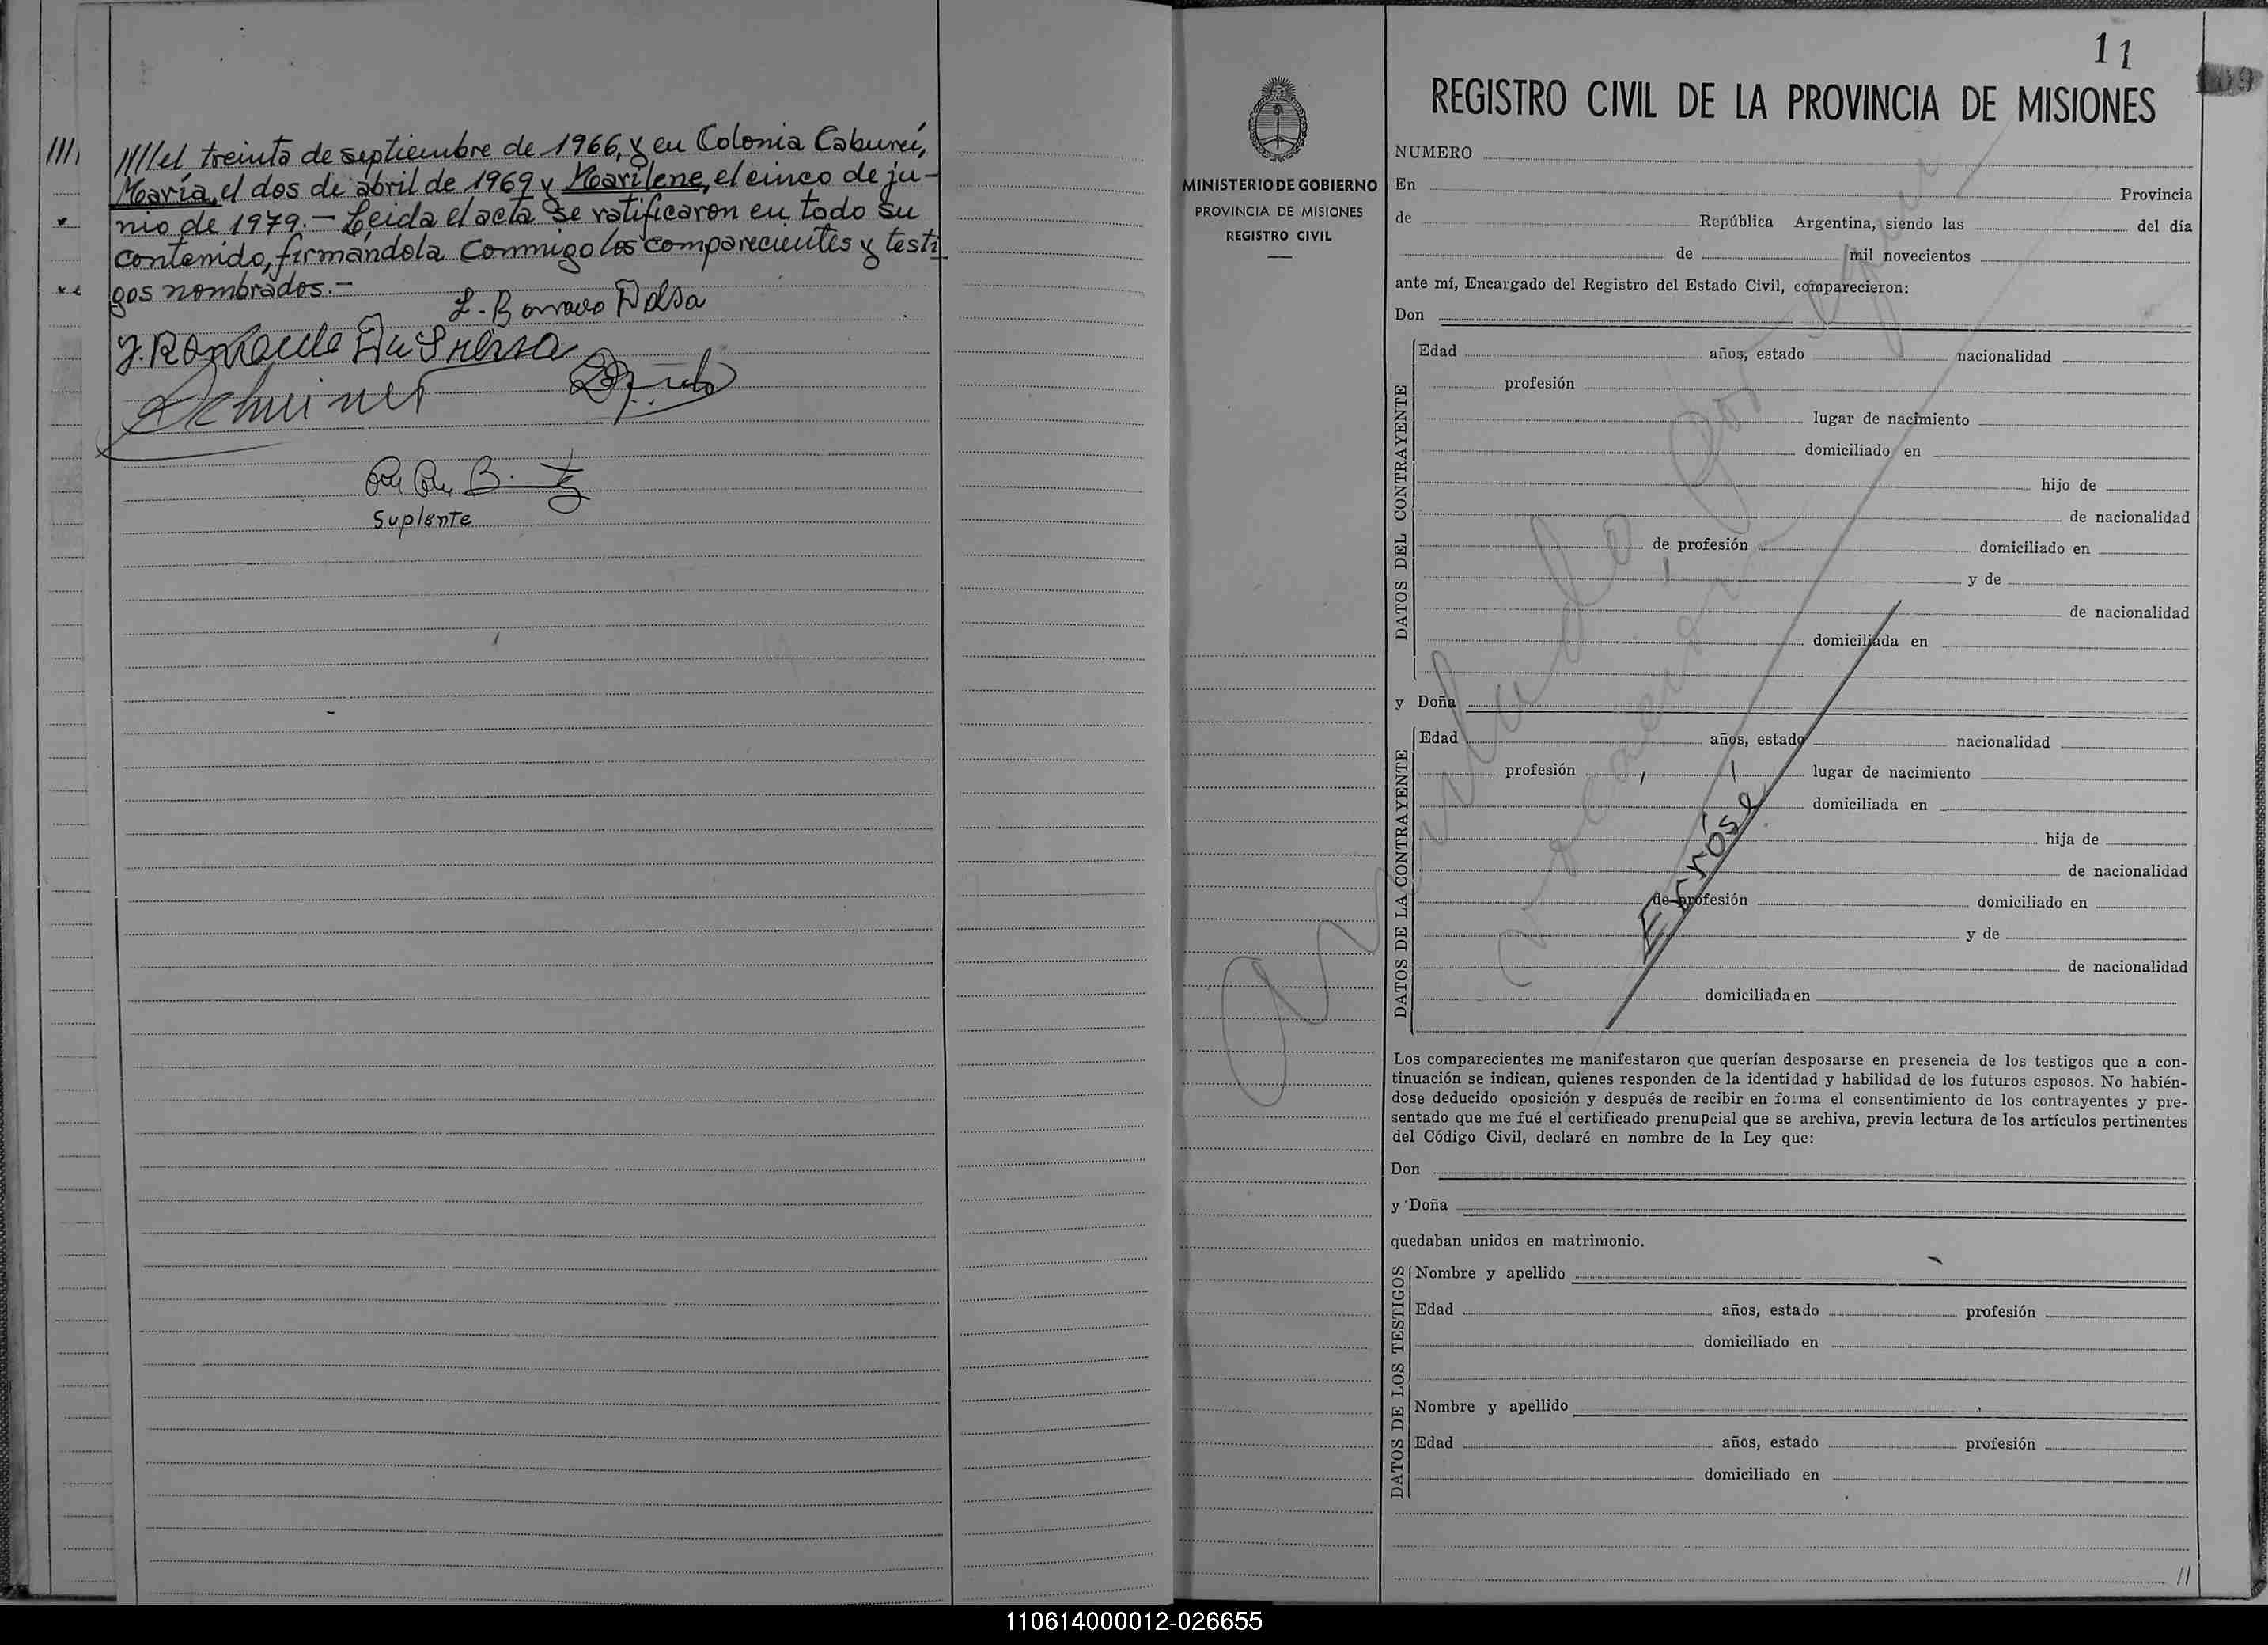 ////el treinta de septiembre de 1966, y en Colonia Cabureí,
María, el dos de abril de 1969 y Marilene, el cinco de ju-
nio de 1979.- Leida el acta se ratificaron en todo su
contenido, firmándola conmigo los comparecientes y testi
gos nombrados.-
Suplente
11
REGISTRO CIVIL DE LA PROVINCIA DE MISIONES
MINISTERIO DE GOBIERNO
PROVINCIA DE MISIONES
REGISTRO CIVIL
NUMERO
En Provincia
de República Argentina, siendo las del día
de mil novecientos
ante mí, Encargado del Registro del Estado Civil, comparecieron:
Don
DATOS DEL CONTRAYENTE
Edad años, estado nacionalidad
profesión
lugar de nacimiento
domiciliado en
hijo de
de nacionalidad
de profesión domiciliado en
y de
de nacionalidad
domiciliada en
y Doña
DATOS DE LA CONTRAYENTE
Edad años, estado nacionalidad
profesión lugar de nacimiento
domiciliada en
hija de
de nacionalidad
de profesión domiciliado en
y de
de nacionalidad
domiciliada en
Anulado por
Erróse
Los comparecientes me manifestaron que querían desposarse en presencia de los testigos que a con-
tinuación se indican, quienes responden de la identidad y habilidad de los futuros esposos. No habién-
dose deducido oposición y después de recibir en forma el consentimiento de los contrayentes y pre-
sentado que me fué el certificado prenupcial que se archiva, previa lectura de los artículos pertinentes
del Código Civil, declaré en nombre de la Ley que:
Don
y Doña
quedaban unidos en matrimonio.
DATOS DE LOS TESTIGOS
Nombre y apellido
Edad años, estado profesión
domiciliado en
Nombre y apellido
Edad años, estado profesión
domiciliado en
//
110614000012-026655